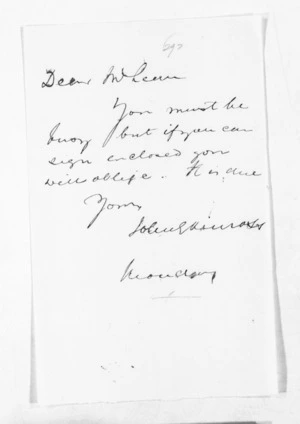 Dear McLean
You must be
busy but if you can
sign enclosed you
will oblige. It is due
Yours
John
Monday